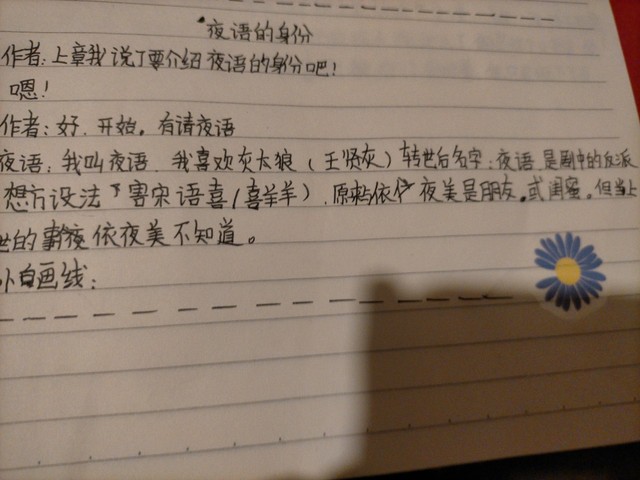 夜语的身份
作者:上章我说了要介绍夜语的身份吧!
嗯!
作者:好、开始。有请夜语
夜语:我叫夜语、我喜欢灰太狼(王贤灰)转世后名字:夜语是剧中的反派
想方设法下害宋语喜(喜羊羊),原来依伊夜美是朋友。或闺蜜。但当上
世的事夜依夜美不知道。
卜白画线: